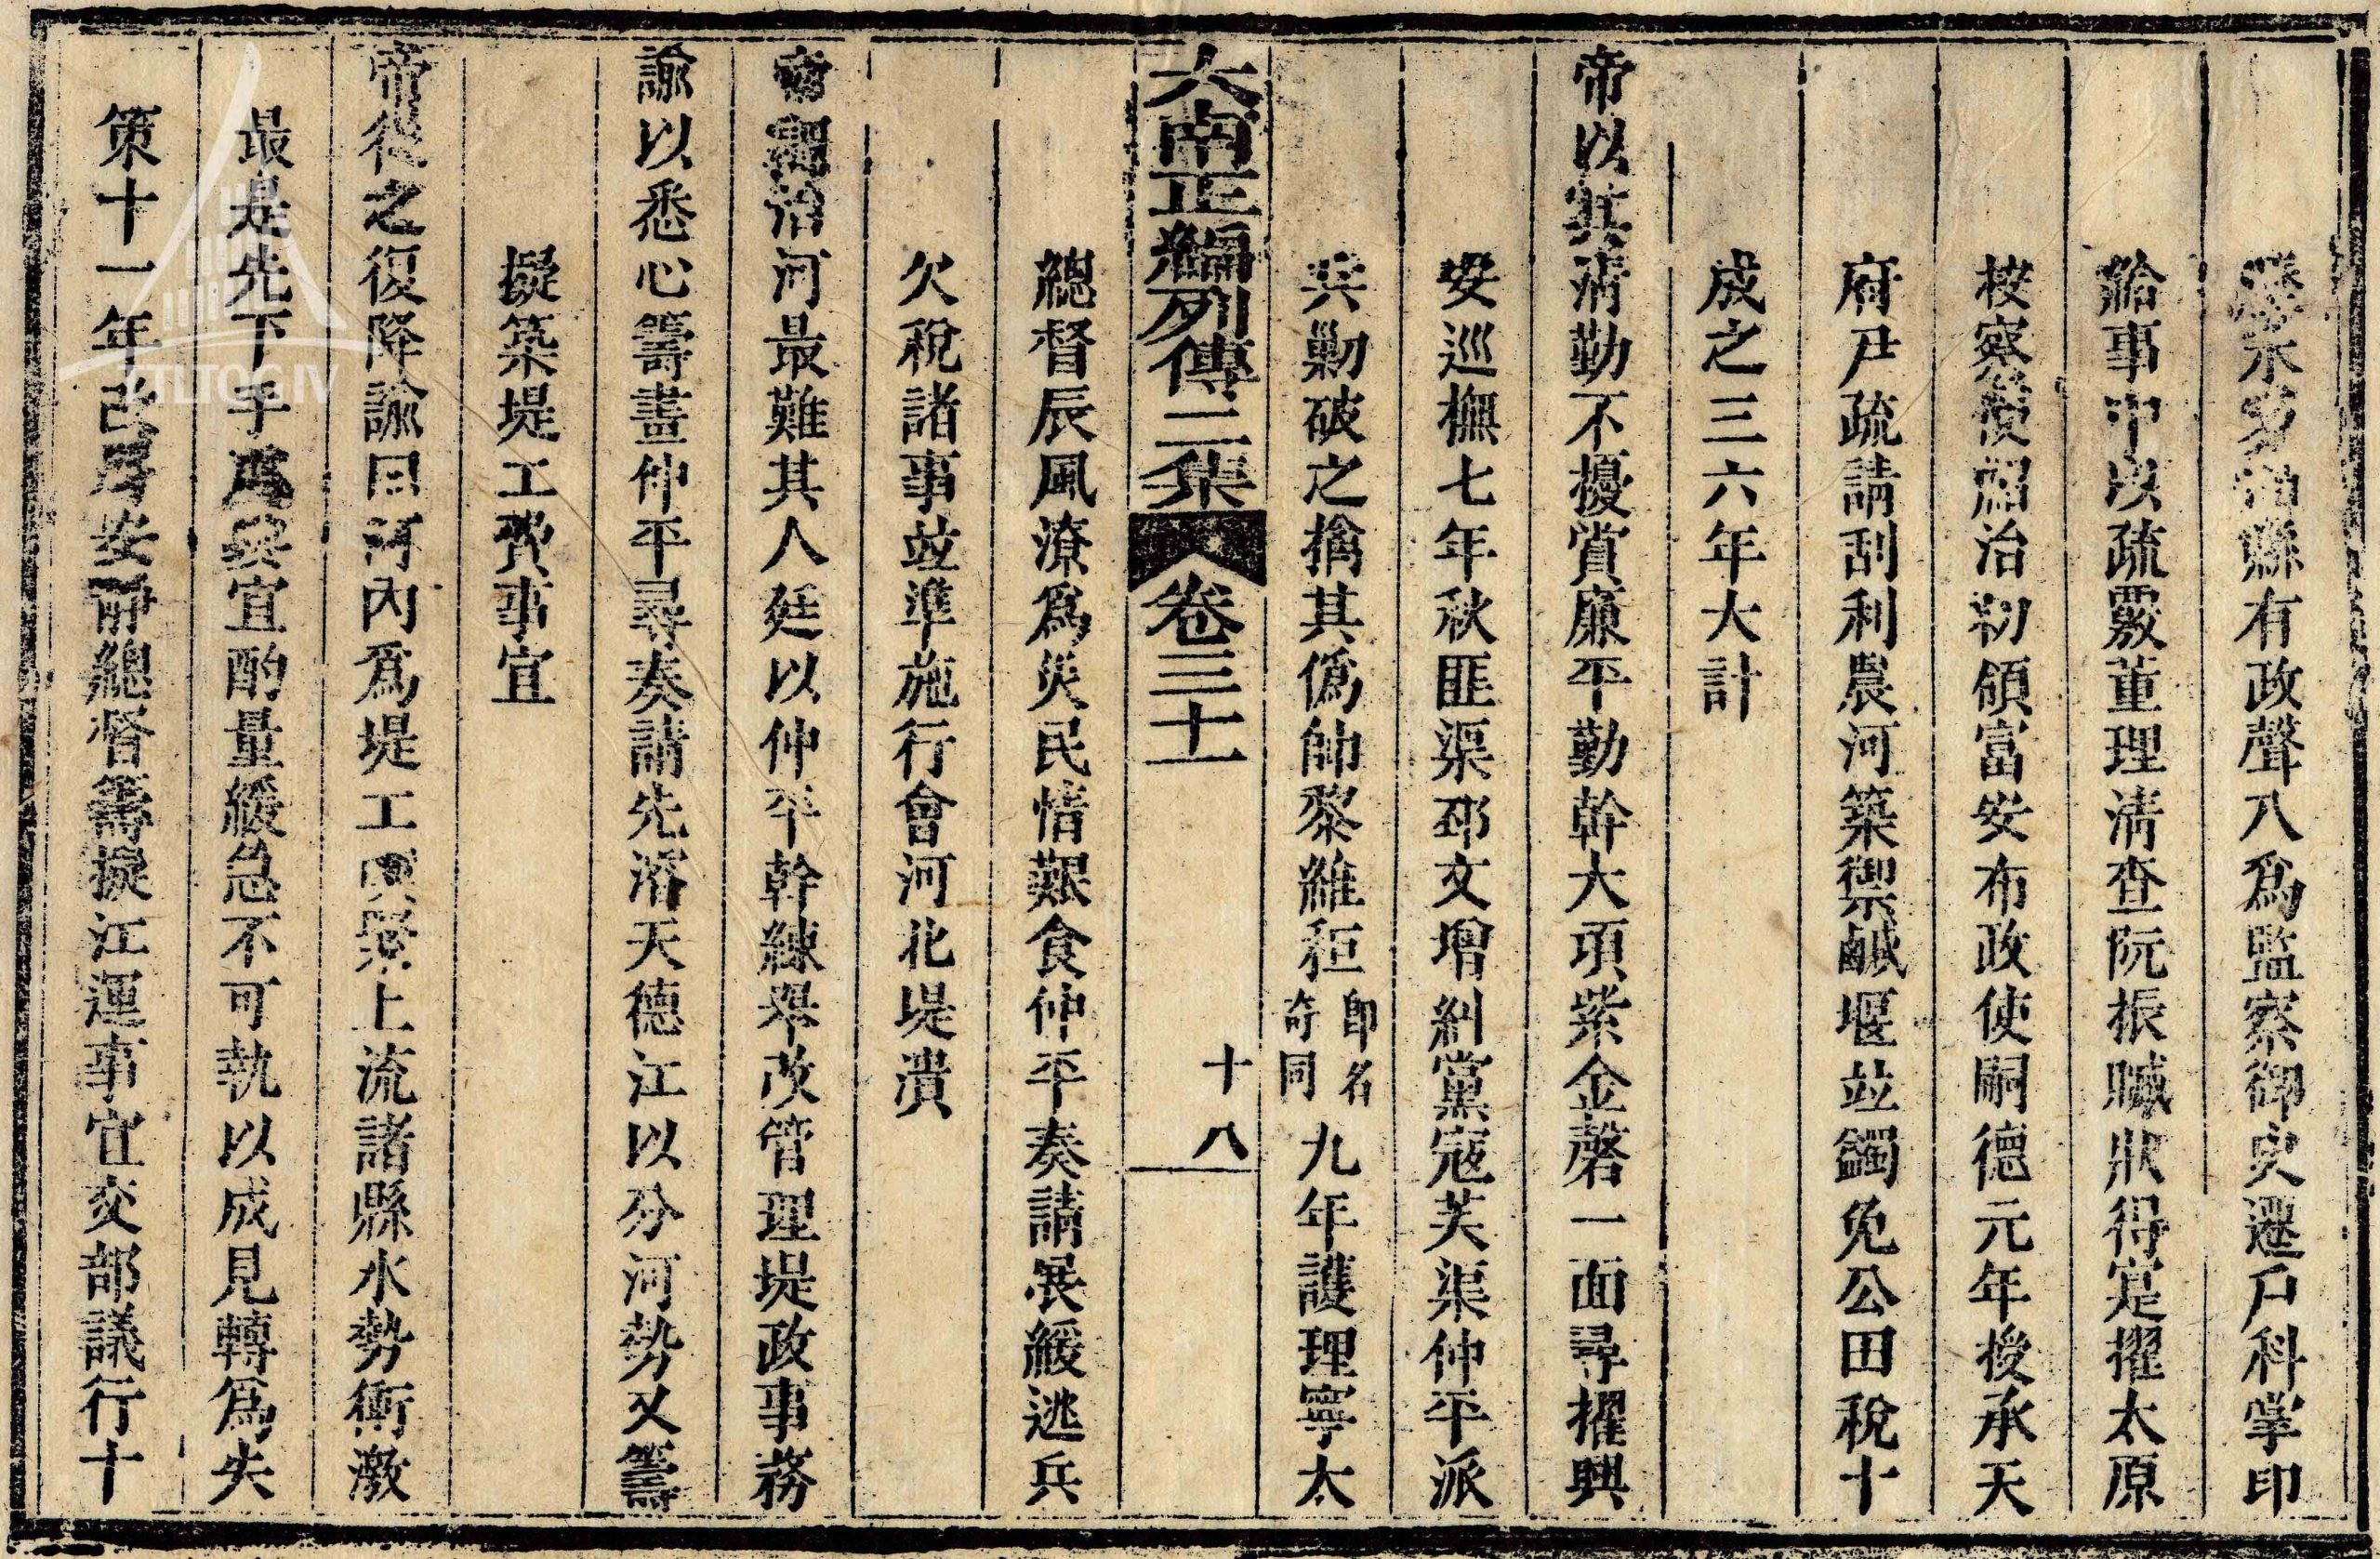 歷永糸油縣有政聲入爲監察御史遷戶科掌印
給事中以疏覈董理清查阮振贓狀得寔擢太原
按察使紹治初領富安布政使嗣德元年授承天
府尹疏請刮利農河築禦鹹堰並蠲免公田稅十
成之三六年大計
帝以其清勤不擾賞廉平勤幹大項紫金磬一面尋擢興
安巡撫七年秋匪渠邳文增糾黨寇芙渠仲平派
兵勦破之擒其僞帥黎維秬印名奇同九年護理寧太
大南正編列傳二集 卷三十一 十八
總督辰風潦爲災民情艱食仲平奏請展緩逃兵
欠稅諸事並準施行會河北堤潰
帝謂治河最難其人廷以仲平幹練舉改管理堤政事務
諭以悉心籌畫仲平尋奏請先濬天德江以分河勢又籌
擬築堤工費事宜
帝從之復降諭曰河內爲堤工喫緊上流諸縣水勢衝激
最是先下手爲要宜酌量緩急不可執以成見轉爲失
策十一年改署安靜總督籌捩江運事宜交部議行十